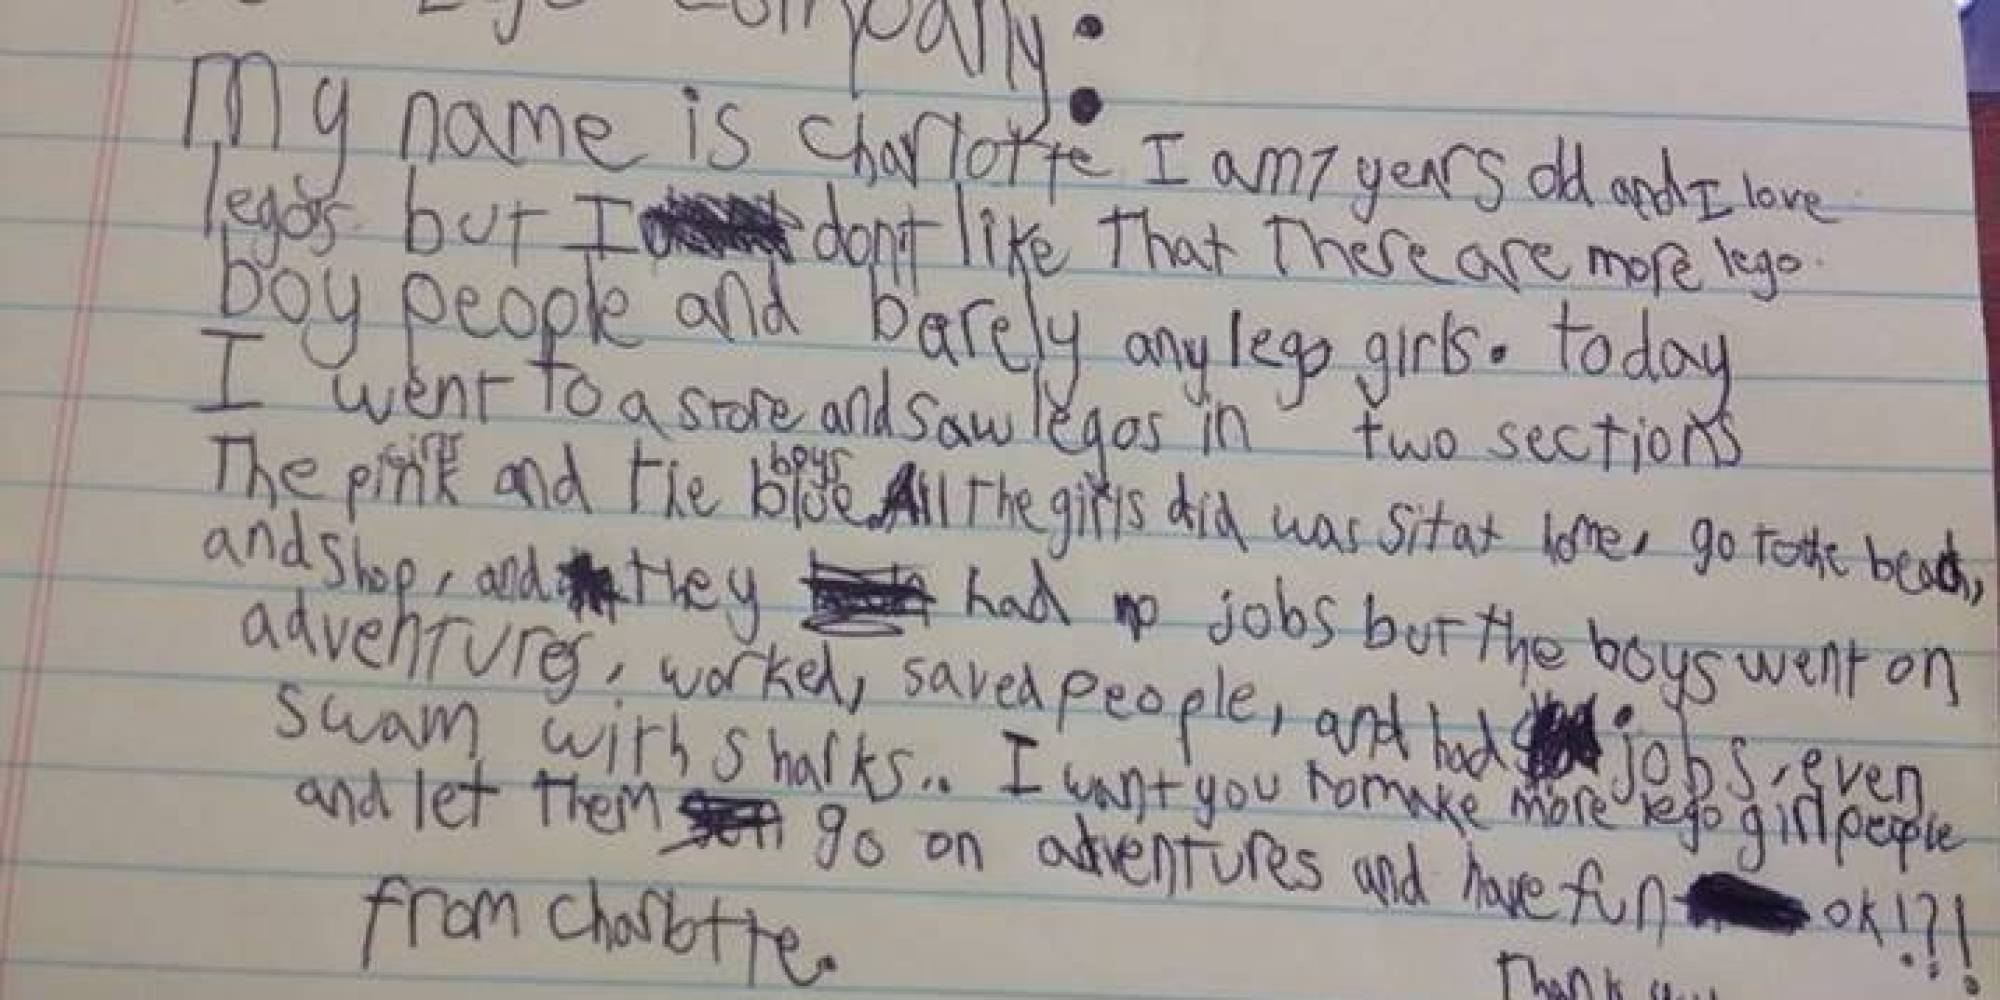 Lego company:
My name is Charlotte I am 7 years old and I love
legos but I don't like that there are more lego
boy people and barely any lego girls. today
I went to a store and saw legos in two sections
girls boys
The pink and the blue. All the girls did was sit at home, go to the beach,
and shop, and they had no jobs but the boys went on
adventures, worked, saved people, and had jobs, even
swam with sharks.. I want you to make more lego girl people
and let them go on adventures and have fun ok!?!
from Charlotte.
Thank you